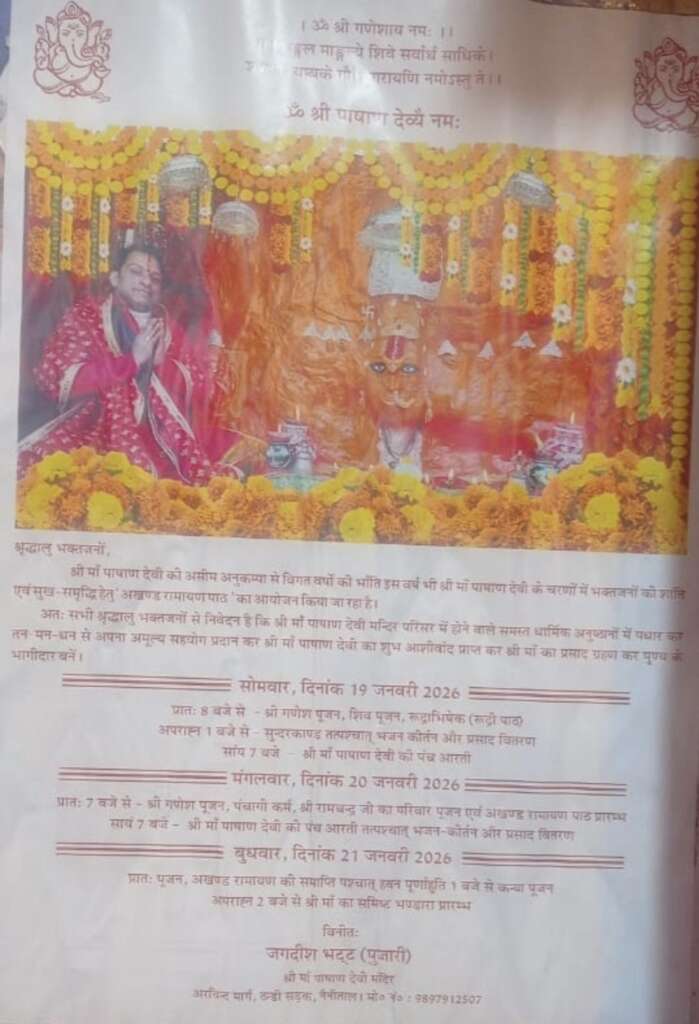 । ॐ श्री गणेशाय नमः ।।
माङ्गल्ये शिवे सर्वार्थ साधिके।
नारायणि नमोऽस्तु ते।।
ॐ श्री पाषाण देव्यै नमः
श्रृद्धालु भक्तजनों,
श्री माँ पाषाण देवी की असीम अनुकम्पा से विगत वर्षो की भाँति इस वर्ष भी श्री माँ पाषाण देवी के चरणों में भक्तजनों की शांति
एवं सुख-समृद्धि हेतु 'अखण्ड रामायण पाठ' का आयोजन किया जा रहा है।
अतः सभी श्रृद्धालु भक्तजनों से निवेदन है कि श्री माँ पाषाण देवी मन्दिर परिसर में होने वाले समस्त धार्मिक अनुष्ठानों में पधार कर
तन-मन-धन से अपना अमूल्य सहयोग प्रदान कर श्री माँ पाषाण देवी का शुभ आशीर्वाद प्राप्त कर श्री माँ का प्रसाद ग्रहण कर पुण्य के
भागीदार बनें।
सोमवार, दिनांक 19 जनवरी 2026
प्रातः 8 बजे से - श्री गणेश पूजन, शिव पूजन, रूद्राभिषेक (रूद्री पाठ)
अपराह्न 1 बजे से - सुन्दरकाण्ड तत्पश्चात् भजन कीर्तन और प्रसाद वितरण
सांय 7 बजे - श्री माँ पाषाण देवी की पंच आरती
मंगलवार, दिनांक 20 जनवरी 2026
प्रातः 7 बजे से - श्री गणेश पूजन, पंचागी कर्म, श्री रामचन्द्र जी का परिवार पूजन एवं अखण्ड रामायण पाठ प्रारम्भ
सायं 7 बजे - श्री माँ पाषाण देवी की पंच आरती तत्पश्चात् भजन-कीर्तन और प्रसाद वितरण
बुधवार, दिनांक 21 जनवरी 2026
प्रातः पूजन, अखण्ड रामायण की समाप्ति पश्चात् हवन पूर्णाहुति 1 बजे से कन्या पूजन
अपराह्न 2 बजे से श्री माँ का समिष्ट भण्डारा प्रारम्भ
विनीतः
जगदीश भट्ट (पुजारी)
श्री माँ पाषाण देवी मंदिर
अरविन्द मार्ग, ठन्डी सड़क, नैनीताल। मो० नं० : 9897912507